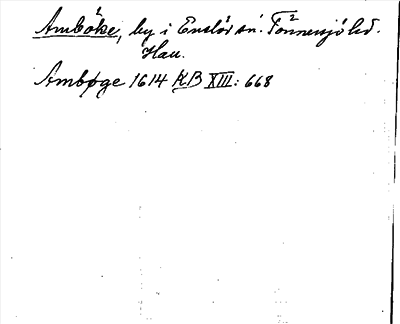 Amböke, by i Enslövs sn. Tönnersjö hd.
Hall.
Ambøge 1614 KB XIII: 668